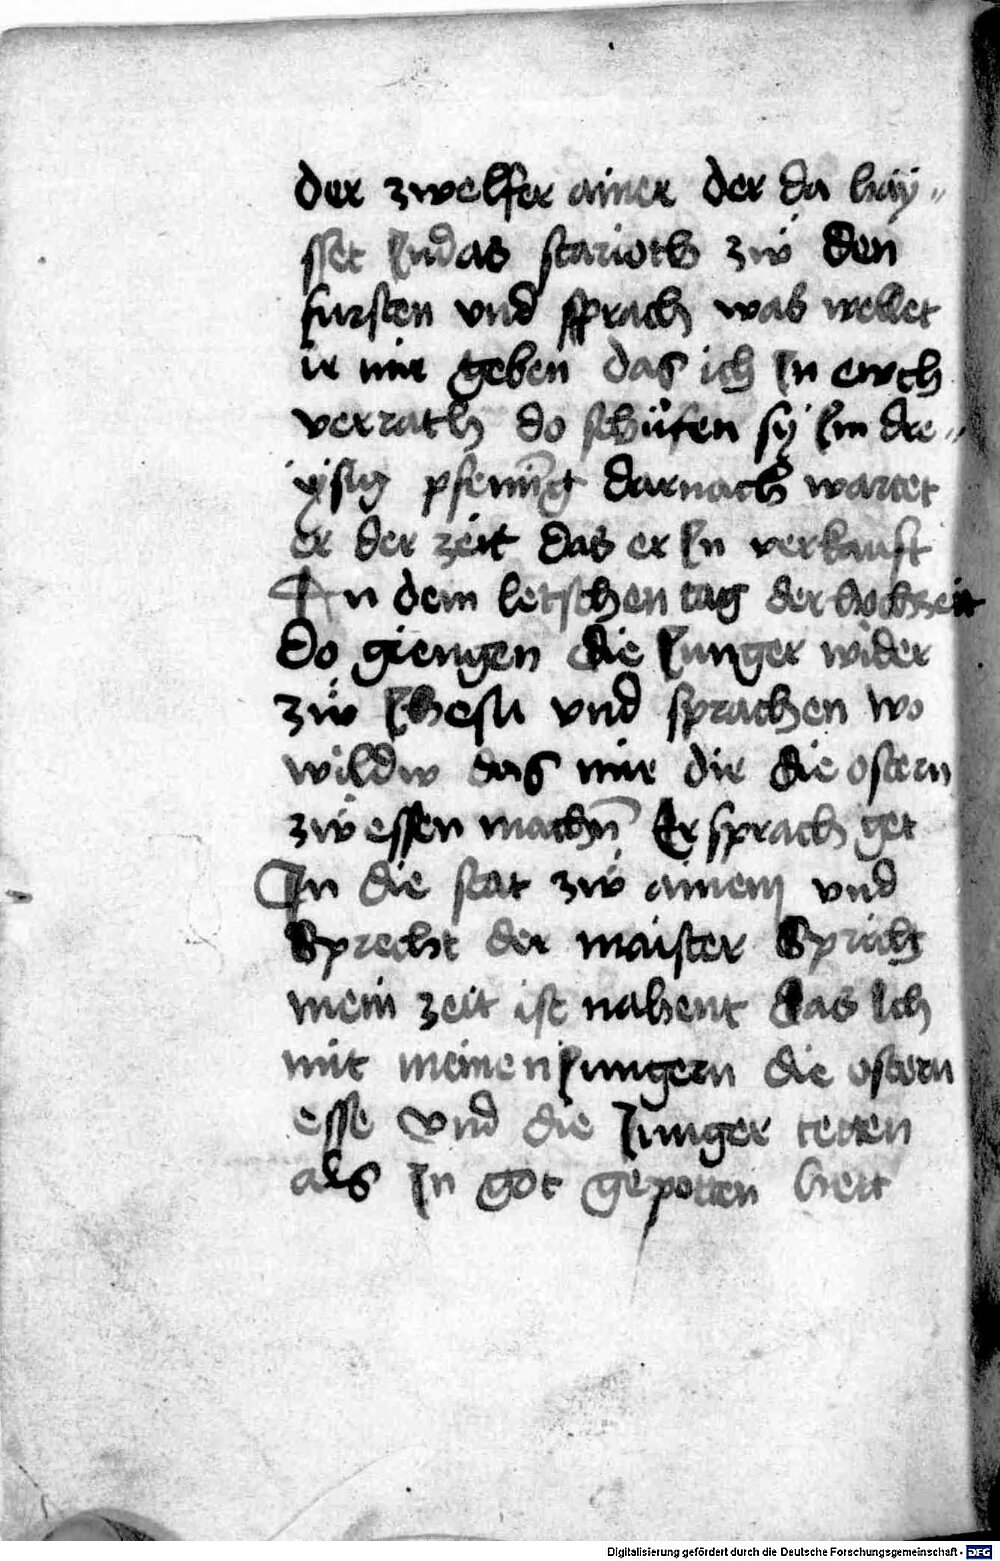 der zwelfer ainer der da hay„
sset Judas scarioth zw̍ den
fursten vnd sprach was wellet
ir mir geben das ich Jn ewch
verrath do schüfen sy Jm dre„
yssig pfening darnach wartet
er der zeit das er Jn verkauft
An dem letschen tag der hochzeit
Do giengen die Junger wider
zw̍ Jhesu vnd sprachen wo
wildw das mir dir die ostern
zw̍ essen machn̄ Er sprach get
Jn die stat zw̍ ainem vnd
Sprecht der maister Spricht
mein zeit ist nahent das Ich
mit meinen Jungern die ostern
esse vnd die Junger tetten
als Jn got gepotten hett
Digitalisierung gefördert durch die Deutsche Forschungsgemeinschaft - DFG